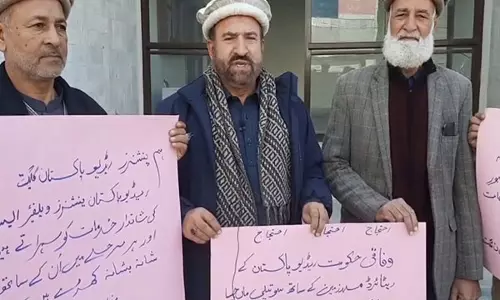 ہم پنشنرز ریڈیو پاکستان گلگت
ریڈیو پاکستان پنشنرز ویلفیئر ایسو
کی شاندار خدمات کو سراہتے ہیں
اور ہر مرحلے میں اُن کے ساتھ
شانہ بشانہ کھڑے ہیں
احتجاج احتجاج احتجاج
وفاقی حکومت ریڈیو پاکستان کے
ریٹائرڈ ملازمین کے ساتھ سوتیلی ماں جیسا